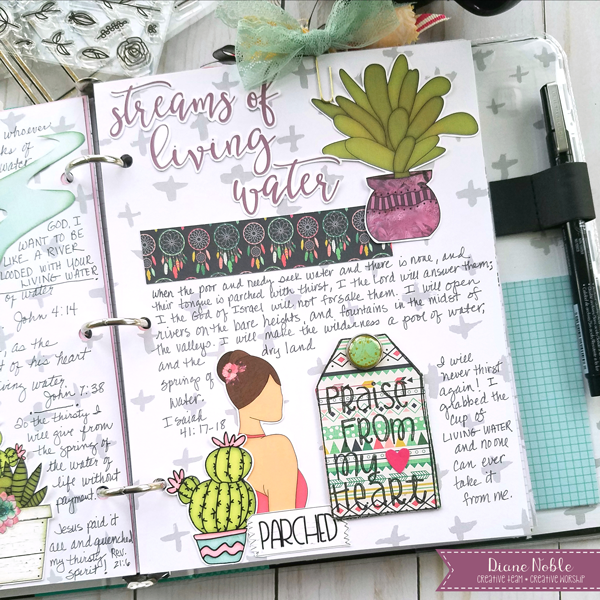 whoever
of
water
GOD, I
WANT TO BE
LIKE A RIVER
LOODED WITH YOUR
LIVING WATER
of water
John 4:14
, as the
t of his heart
iving water.
John 7:38
To the thirsty I
will give from
the spring of
the water of
life without
payment.
Jesus paid it
all and quenched
my thirsty Rev.
spirit! 21:6
streams of
living
water
When the poor and needy seek water and there is none, and
their tongue is parched with thirst, I the Lord will answer them;
I the God of Israel will not forsake them. I will open
rivers on the bare heights, and fountains in the midst of
the valleys. I will make the wilderness a pool of water,
and the dry land
springs of
water.
Isaiah
41:17-18
PRAISE
FROM
my
HEART
I will
never thirst
again! I
grabbed the
cup of
LIVING WATER
and none
can ever
take it
from me.
PARCHED
Diane Noble
CREATIVE TEAM • CREATIVE WORSHIP